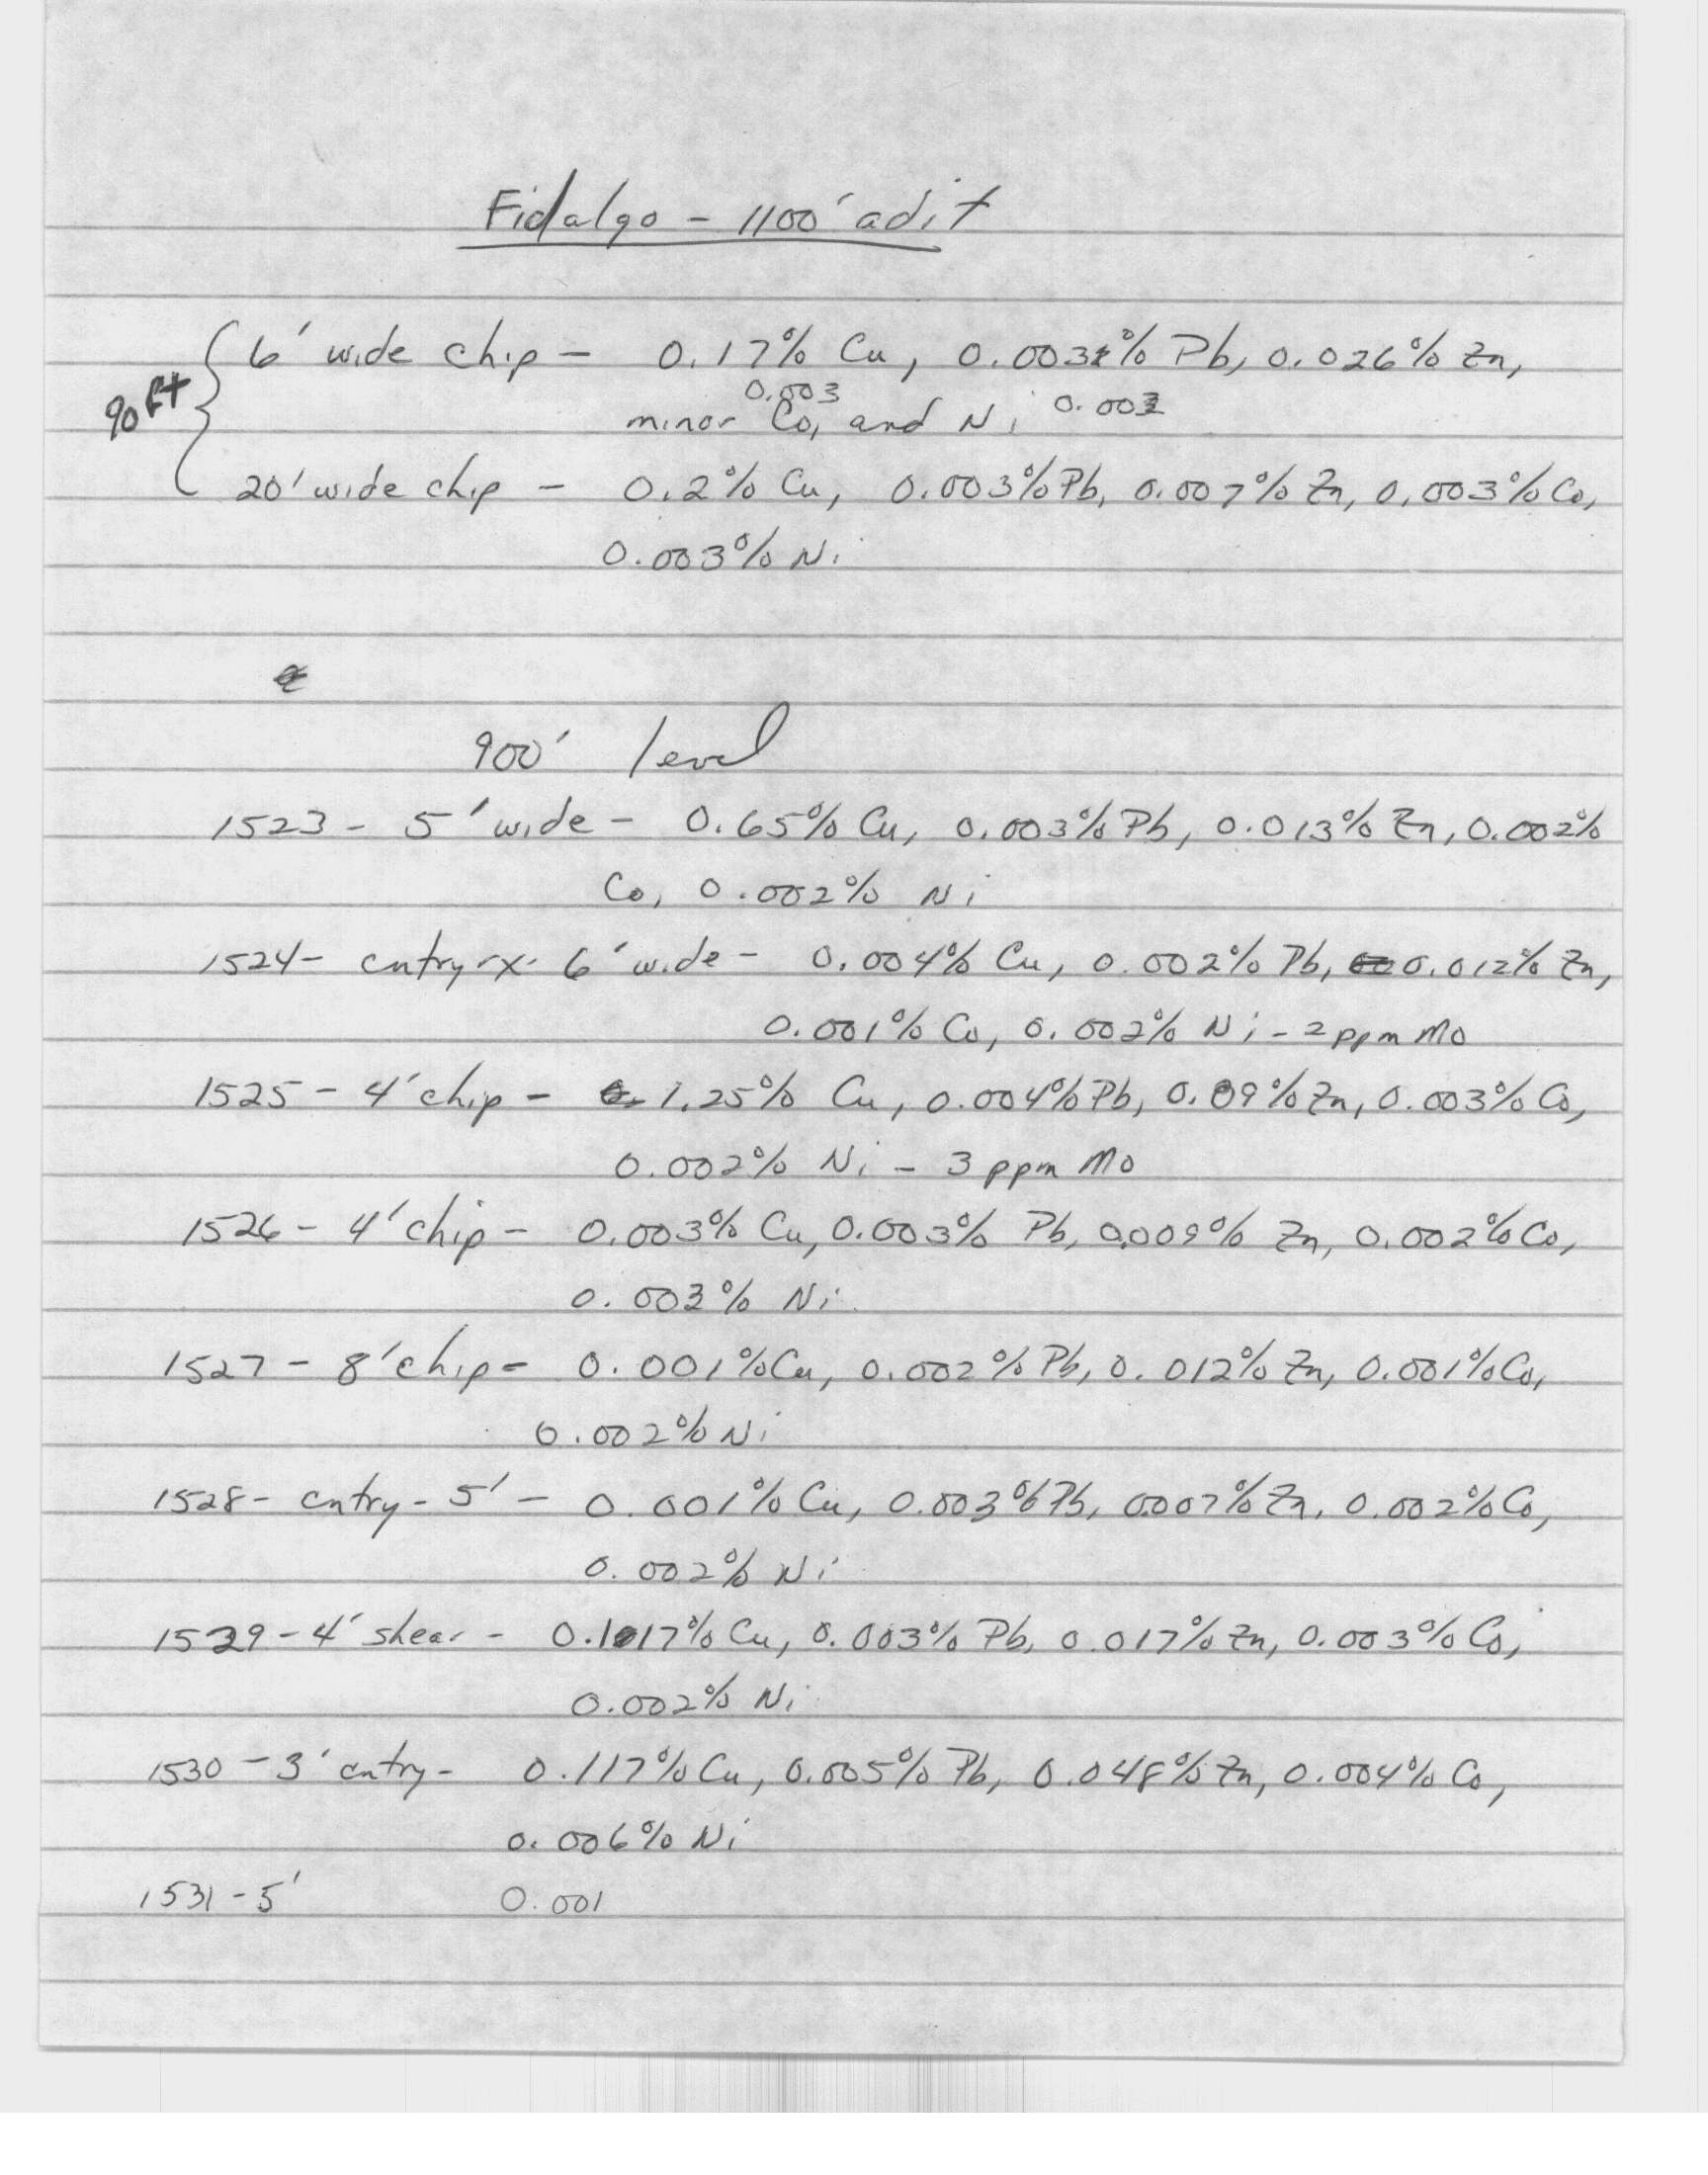 Fidalgo - 1100' adit
6' wide chip - 0.17% Cu, 0.003% Pb, 0.026% Zn,
90 ft
0.003 0.003
minor Co, and Ni
20' wide chip - 0.2% Cu, 0.003% Pb, 0.007% Zn, 0.003% Co,
0.003% Ni
900' level
1523 - 5' wide - 0.65% Cu, 0.003% Pb, 0.013% Zn, 0.002%
Co, 0.002% Ni
1524 - cntry-x- 6' wide - 0.004% Cu, 0.002% Pb, 0.012% Zn,
0.001% Co, 0.002% Ni - 2 ppm Mo
1525 - 4' chip - 1.25% Cu, 0.004% Pb, 0.09% Zn, 0.003% Co,
0.002% Ni - 3 ppm Mo
1526 - 4' chip - 0.003% Cu, 0.003% Pb, 0.009% Zn, 0.002% Co,
0.003% Ni
1527 - 8' chip - 0.001% Cu, 0.002% Pb, 0.012% Zn, 0.001% Co,
0.002% Ni
1528 - cntry - 5' - 0.001% Cu, 0.003% Pb, 0.007% Zn, 0.002% Co,
0.002% Ni
1529 - 4' shear - Cu, 0.003% Pb, 0.017% Zn, 0.003% Co,
0.002% Ni
1530 - 3' cntry - 0.117% Cu, 0.005% Pb, 0.048% Zn, 0.004% Co,
0.006% Ni
1531 - 5' 0.001